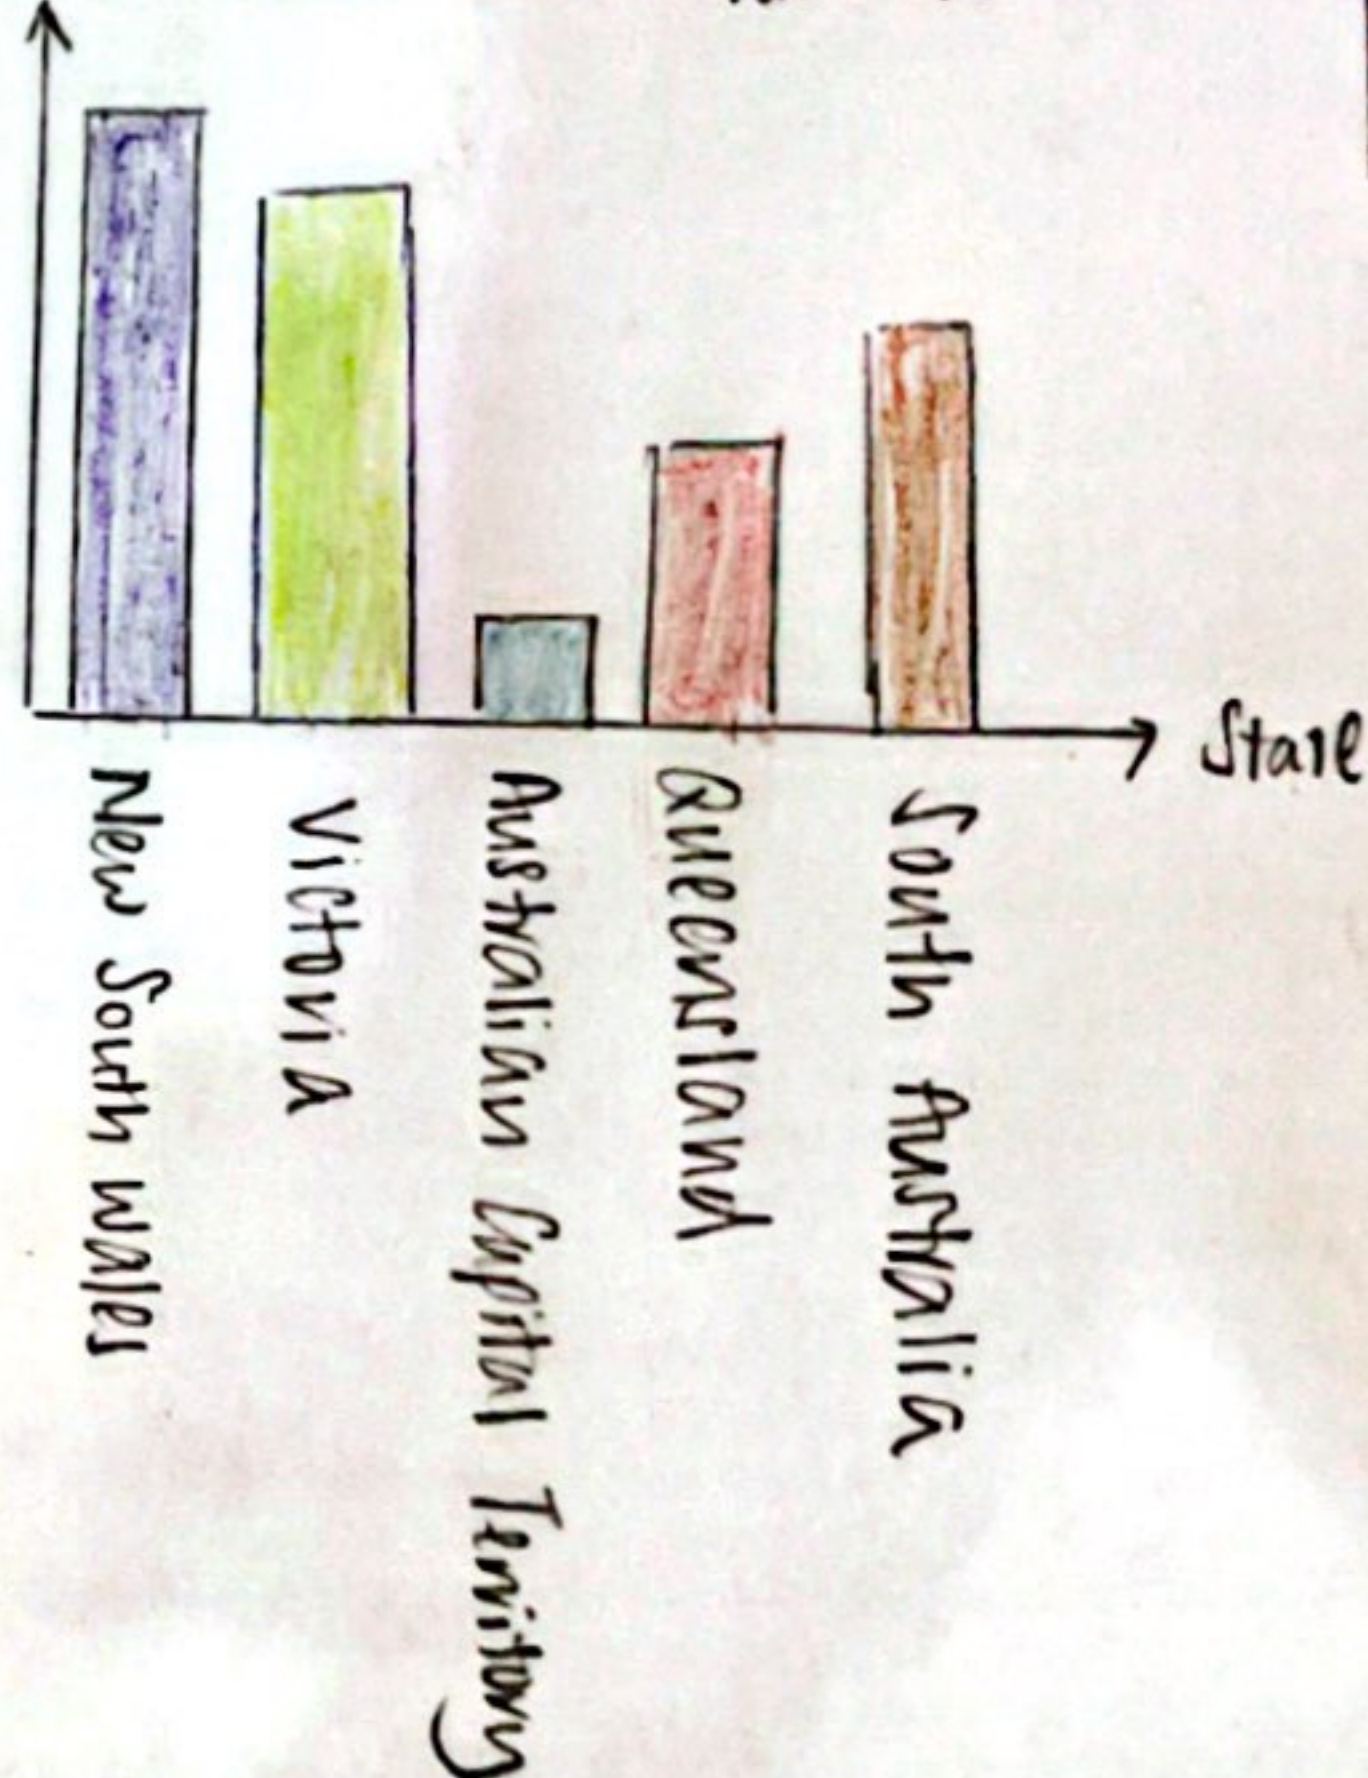 State
New South Wales
Victoria
Australian Capital Territory
Queensland
South Australia